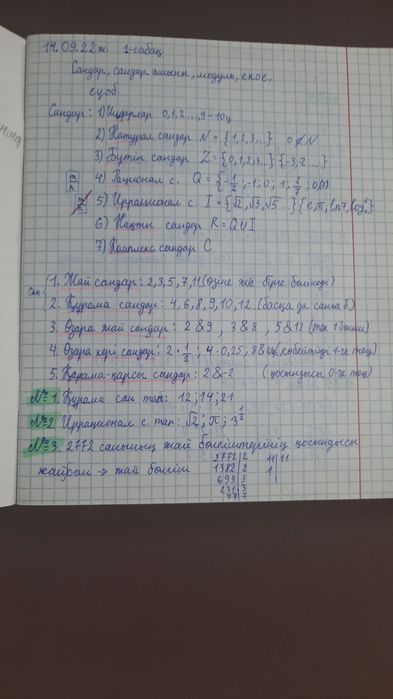 14.09.22ж 1-сабақ
Сандар, сандар жиыны, модуль, екое,
еүоб
Сандар: 1) Цифрлар 0,1,2...,9 - 10ц
2) Натурал сандар N = {1,2,3...} 0∉N
3) Бүтін сандар Z = {0,1,2,3...} {-3,-2...}
m/n 4) Рационал с. Q = {-1/2; -1; 0; 1; 2/7; 0,(1)}
m/n 5) Иррационал с. I = {√2, √3, √5...} {e, π, ln7, log}
6) Нақты сандар R = Q∪I
7) Комплекс сандар C
Сан
1. Жай сандар: 2,3,5,7,11 (өзіне және бірге бөлінеді)
2. Құрама сандар: 4, 6, 8, 9, 10, 12 (басқа да санға б)
3. Өзара жай сандар: 2 & 9, 3 & 8, 5 & 12 (тек 1 бөлгіш)
4. Өзара кері сандар: 2 · 1/2; 4 · 0,25, 8 & (көбейтіндісі 1-ге тең)
5. Қарама-қарсы сандар: 2 & -2 (қосындысы 0-ге тең)
№1. Құрама сан тап: 12; 14; 21
№2 Иррационал с. тап: √2; π; 3^(1/2)
№3. 2772 санының жай бөлгіштерінің қосындысы
жай сан → жай бөлгіш 2772 | 2 11 | 11
1382 | 2 1
693 | 3
231 | 3
77 | 7